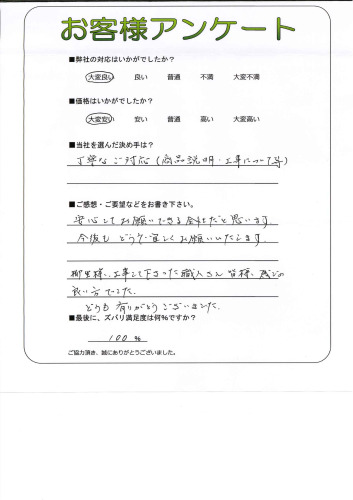 お客様アンケート
■弊社の対応はいかがでしたか?
大変良い 良い 普通 不満 大変不満
■価格はいかがですか?
大変安い 安い 普通 高い 大変高い
■当社を選んだ決め手は?
丁寧なご対応(商品説明・工事について等)
■ご感想・ご要望などをお書き下さい。
安心してお願いできる会社だと思います。
今後もどうぞ宜しくお願いいたします。
柳生様、工事して下さった職人さん皆様、感じの
良い方でした。
どうも有りがとうございました。
■最後に、ズバリ満足度は何%ですか?
100 %
ご協力頂き、誠にありがとうございました。